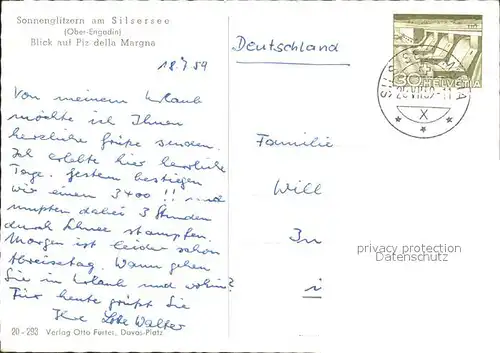 Sonnenglitzern am Silsersee
(Ober-Engadin)
Blick auf Piz della Margna
18.7.59
Von meinem Urlaub
möchte ich Ihnen
herzliche Grüße senden.
Ich erlebte hier herrliche
Tage. Gestern bestiegen
wir einen 3400 !! und
mußten dabei 3 Stunden
durch Schnee stampfen.
Morgen ist leider schon
Abreisetag. Wann gehen
Sie in Urlaub und wohin?
Für heute grüßt Sie
Ihre Lotte Walter
20 - 293 Verlag Otto Furter, Davos-Platz
Deutschland
30 HELVETIA
X
Familie
Will
In
privacy protection
Datenschutz